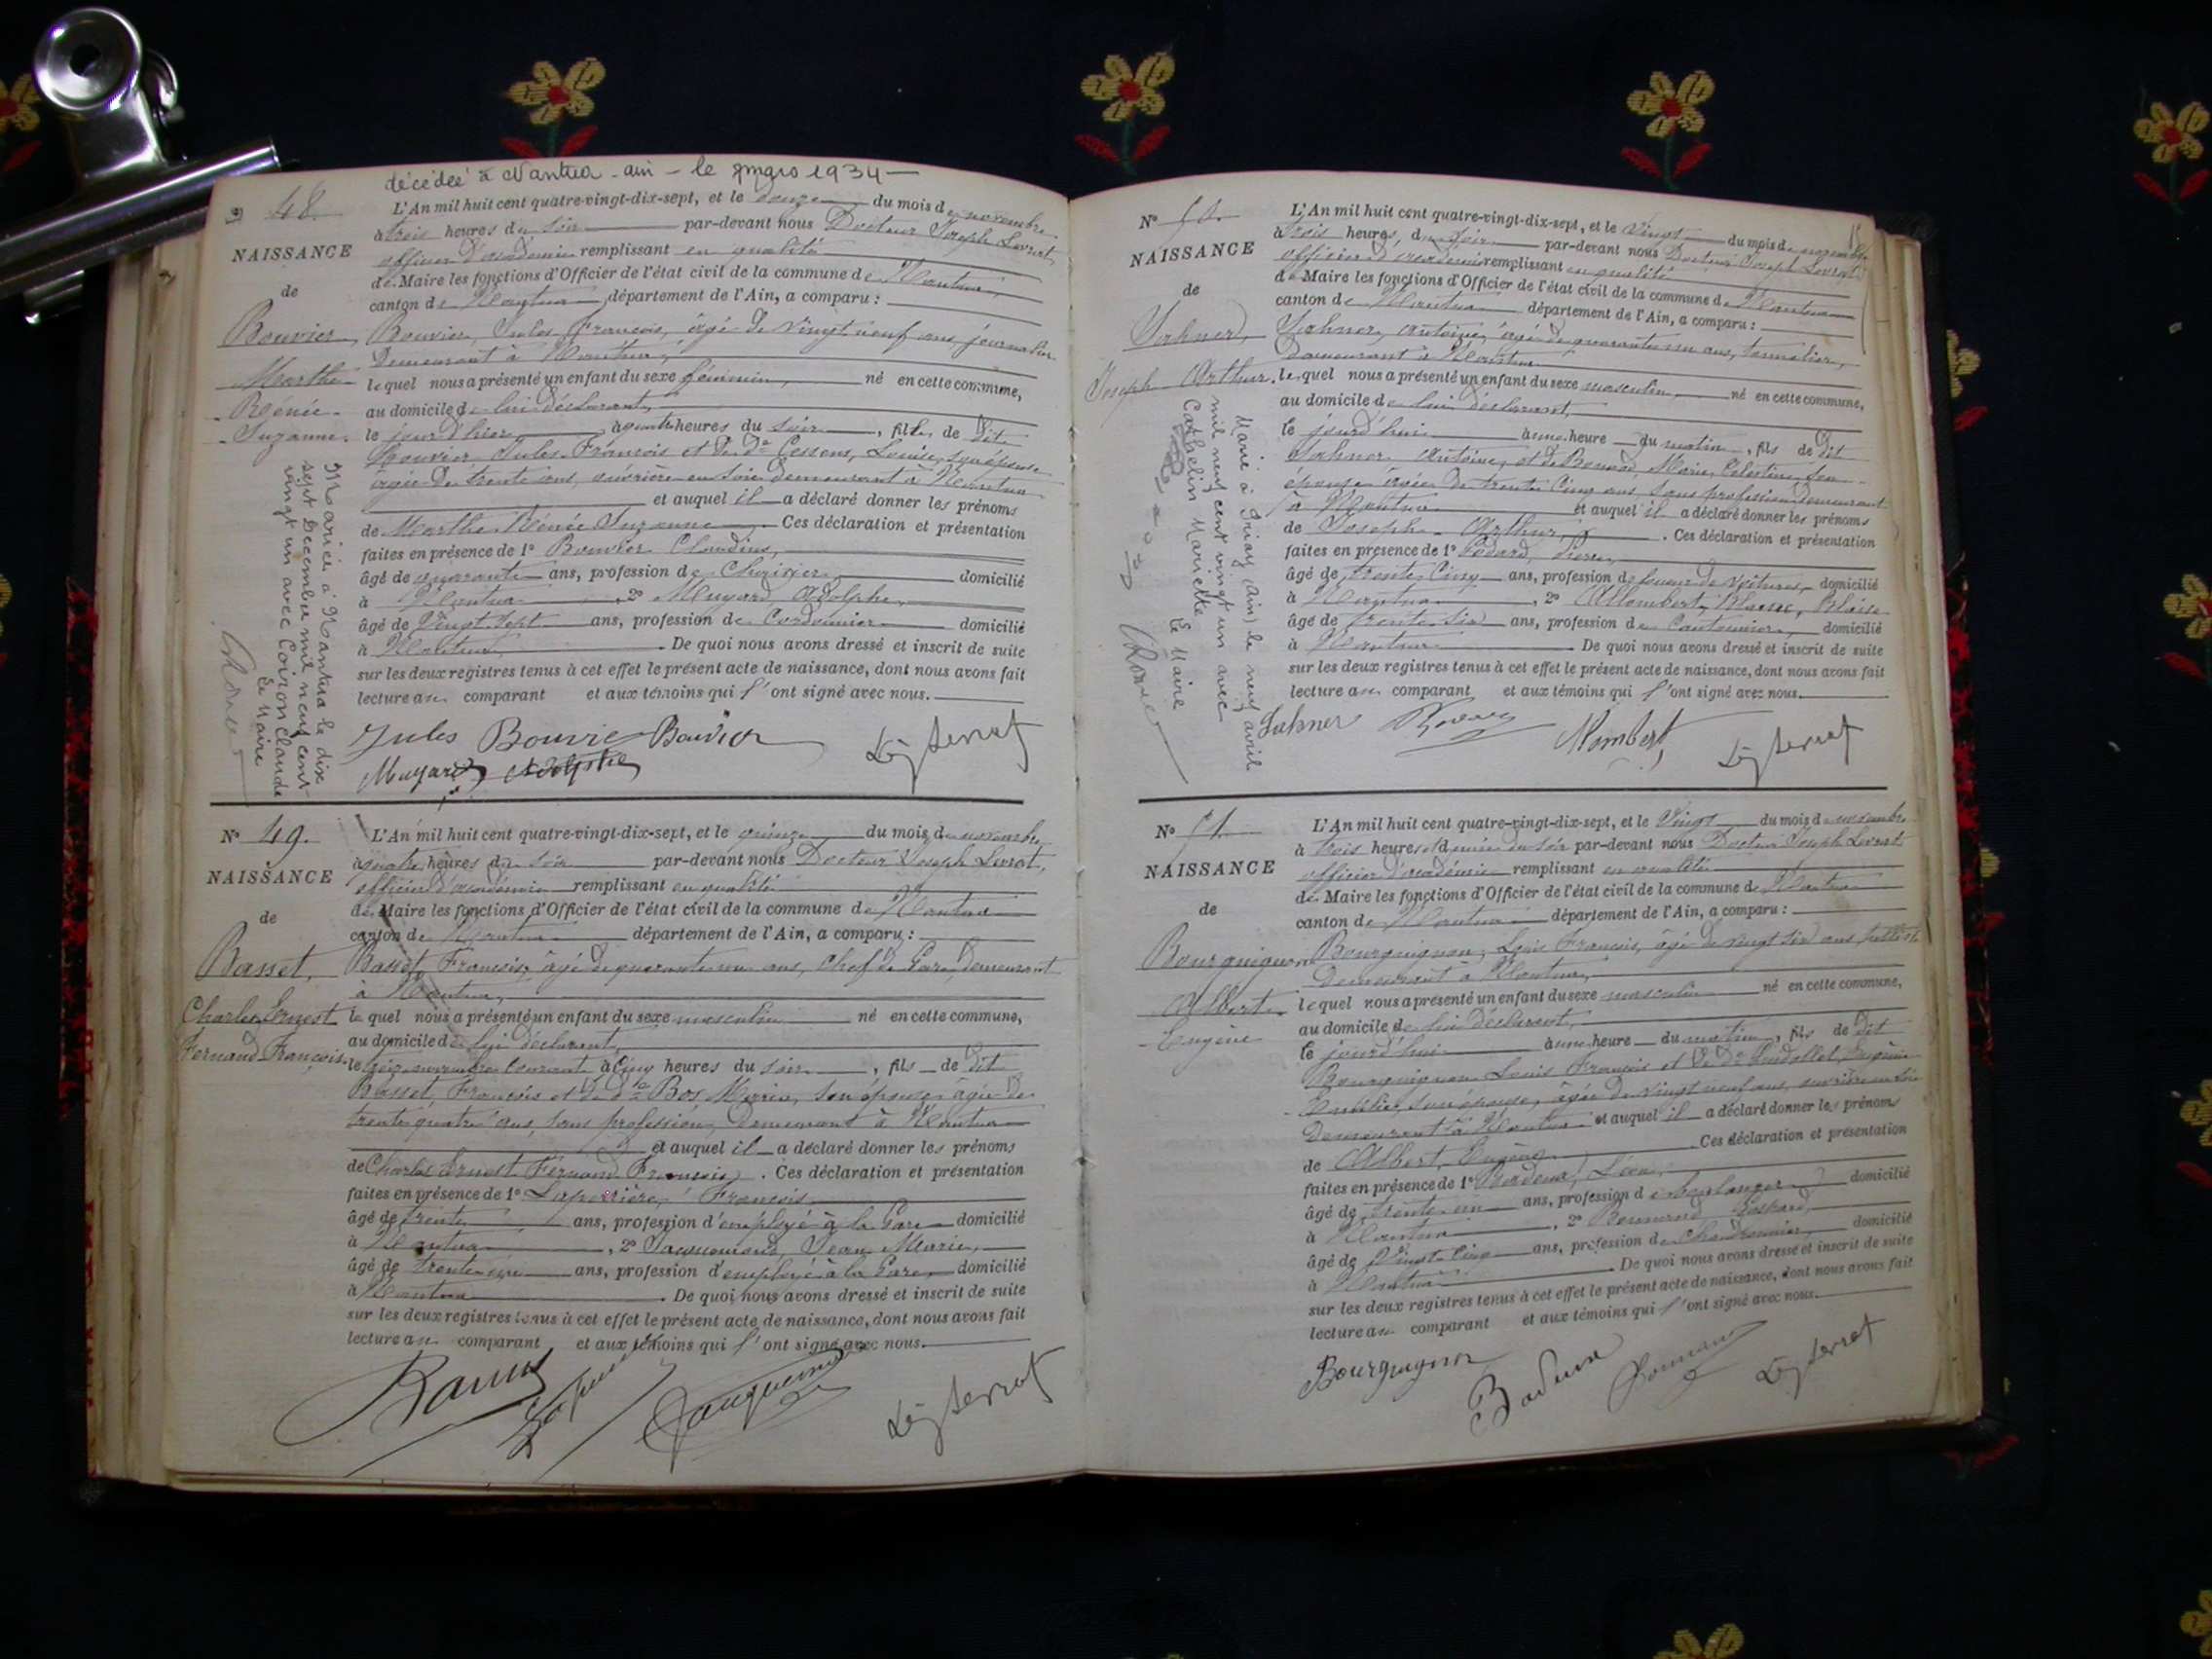 décédée à Nantua - ain - le mars 1934 -
48.
NAISSANCE
de
Bouvier,
Marthe
- Rénée -
- Suzanne.
L'An mil huit cent quatre-vingt-dix-sept, et le douze du mois de novembre
à trois heures du soir par-devant nous Docteur Joseph Levrat,
officier d'académie remplissant en qualité
de Maire les fonctions d'Officier de l'état civil de la commune de Nantua,
canton de Nantua, département de l'Ain, a comparu :
Bouvier, Jules François, âgé de vingt neuf ans, journalier
Demeurant à Nantua,
lequel nous a présenté un enfant du sexe féminin, né en cette commune,
au domicile de lui déclarant,
le jour d'hier à heures du soir, fille de dit
Bouvier Jules François et de de Louise, son épouse
âgée de trente ans, ouvrière en soie demeurant à Nantua
et auquel il a déclaré donner les prénoms
de Marthe Rénée Suzanne. Ces déclaration et présentation
faites en présence de 1° Bouvier Claudius,
âgé de quarante ans, profession de domicilié
à Nantua, 2° Mugard Adolphe,
âgé de Vingt sept ans, profession de Cordonnier domicilié
à Nantua. De quoi nous avons dressé et inscrit de suite
sur les deux registres tenus à cet effet le présent acte de naissance, dont nous avons fait
lecture au comparant et aux témoins qui l'ont signé avec nous.
Mariée à Nantua le dix
sept Décembre mil neuf cent
vingt un avec Coiron Claude
Le Maire
Jules Bouvier Bouvier
Mugard Adolphe Levrat
N° 49.
NAISSANCE
de
Basset,
Charles Ernest
Fernand François
L'An mil huit cent quatre-vingt-dix-sept, et le quinze du mois de novembre
à quatre heures du soir par-devant nous Docteur Joseph Levrat,
officier d'académie remplissant en qualité
de Maire les fonctions d'Officier de l'état civil de la commune de Nantua
canton de Nantua département de l'Ain, a comparu :
Basset, François, âgé de quarante un ans, Chef de Gare, demeurant
à Nantua,
lequel nous a présenté un enfant du sexe masculin né en cette commune,
au domicile de lui déclarant,
le treize novembre courant à cinq heures du soir, fils de dit
Basset, François et de de Bos Maria, son épouse âgée de
trente quatre ans, sans profession, Demeurant à Nantua
et auquel il a déclaré donner les prénoms
de Charles Ernest Fernand François. Ces déclaration et présentation
faites en présence de 1° Laperrière, François
âgé de trente ans, profession d'employé à la Gare domicilié
à Nantua, 2° Jacquemond, Jean Marie,
âgé de trente ans, profession d'employé à la Gare, domicilié
à Nantua. De quoi nous avons dressé et inscrit de suite
sur les deux registres tenus à cet effet le présent acte de naissance, dont nous avons fait
lecture au comparant et aux témoins qui l'ont signé avec nous.
Levrat
N° 50.
NAISSANCE
de
Jahner,
Joseph Arthur.
L'An mil huit cent quatre-vingt-dix-sept, et le Vingt du mois de novembre
à trois heures, du soir par-devant nous Docteur Joseph Levrat,
officier d'académie remplissant en qualité
de Maire les fonctions d'Officier de l'état civil de la commune de Nantua
canton de Nantua département de l'Ain, a comparu :
Jahner, Antoine, âgé de quarante un ans, tonnelier,
Demeurant à Nantua
lequel nous a présenté un enfant du sexe masculin, né en cette commune,
au domicile de lui déclarant,
le jourd'hui à une heure du matin, fils de dit
Jahner Antoine, et de Marie, Célestine son
épouse âgée de trente cinq ans, sans profession demeurant
à Nantua et auquel il a déclaré donner les prénoms
de Joseph Arthur. Ces déclaration et présentation
faites en présence de 1° Pierre,
âgé de trente cinq ans, profession de loueur de voitures, domicilié
à Nantua, 2° Allombert, Blaise
âgé de trente six ans, profession de Cantonnier, domicilié
à Nantua. De quoi nous avons dressé et inscrit de suite
sur les deux registres tenus à cet effet le présent acte de naissance, dont nous avons fait
lecture au comparant et aux témoins qui l'ont signé avec nous.
Marié à (Ain) le neuf avril
mil neuf cent vingt un avec
Cathelin Mariette
Le Maire
Jahner Allombert Levrat
N° 51.
NAISSANCE
de
Bourguignon
Albert
- Eugène
L'An mil huit cent quatre-vingt-dix-sept, et le Vingt du mois de novembre
à trois heures et demie du soir par-devant nous Docteur Joseph Levrat
officier d'académie remplissant en qualité
de Maire les fonctions d'Officier de l'état civil de la commune de Nantua
canton de Nantua département de l'Ain, a comparu :
Bourguignon, Louis François, âgé de vingt six ans
Demeurant à Nantua,
lequel nous a présenté un enfant du sexe masculin né en cette commune,
au domicile de lui déclarant,
le jourd'hui à une heure du matin, fils de dit
Bourguignon Louis François et de de
son épouse, âgée de vingt neuf ans, ouvrière en soie
Demeurant à Nantua et auquel il a déclaré donner les prénoms
de Albert, Eugène. Ces déclaration et présentation
faites en présence de 1° Léon,
âgé de trente un ans, profession de boulanger domicilié
à Nantua, 2°
âgé de Vingt cinq ans, profession de domicilié
à Nantua. De quoi nous avons dressé et inscrit de suite
sur les deux registres tenus à cet effet le présent acte de naissance, dont nous avons fait
lecture au comparant et aux témoins qui l'ont signé avec nous.
Bourguignon Levrat